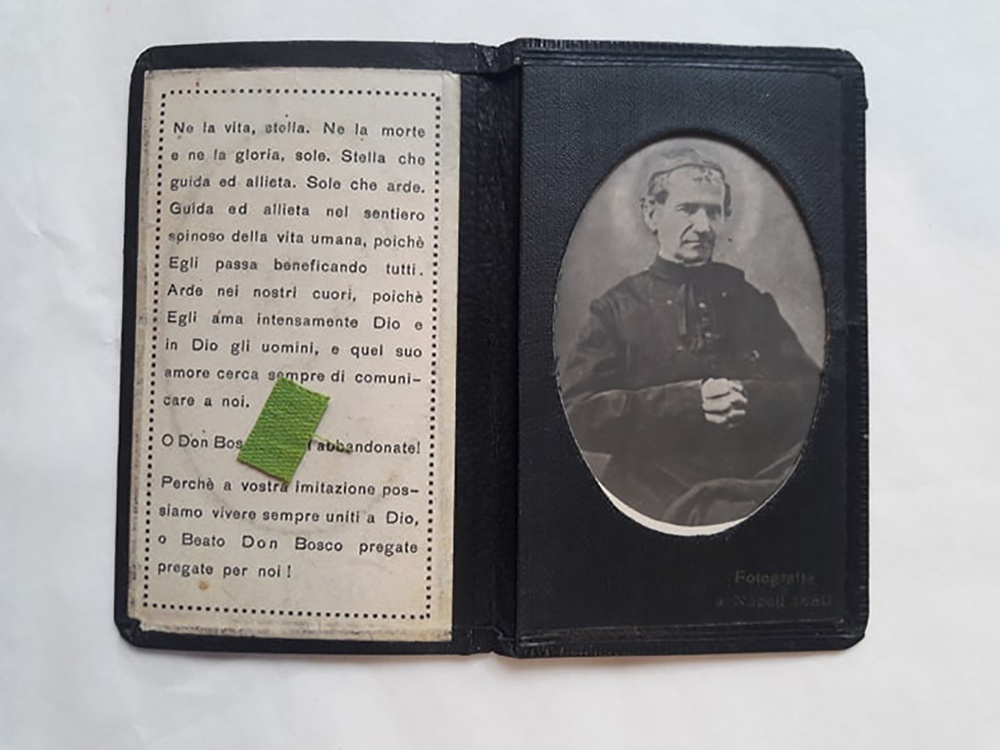 Ne la vita, stella. Ne la morte
e ne la gloria, sole. Stella che
guida ed allieta. Sole che arde.
Guida ed allieta nel sentiero
spinoso della vita umana, poichè
Egli passa beneficando tutti.
Arde nei nostri cuori, poichè
Egli ama intensamente Dio e
in Dio gli uomini, e quel suo
amore cerca sempre di comuni-
care a noi.
O Don Bos abbandonate!
Perchè a vostra imitazione pos-
siamo vivere sempre uniti a Dio,
o Beato Don Bosco pregate
pregate per noi!
Fotografia
a Napoli 1880